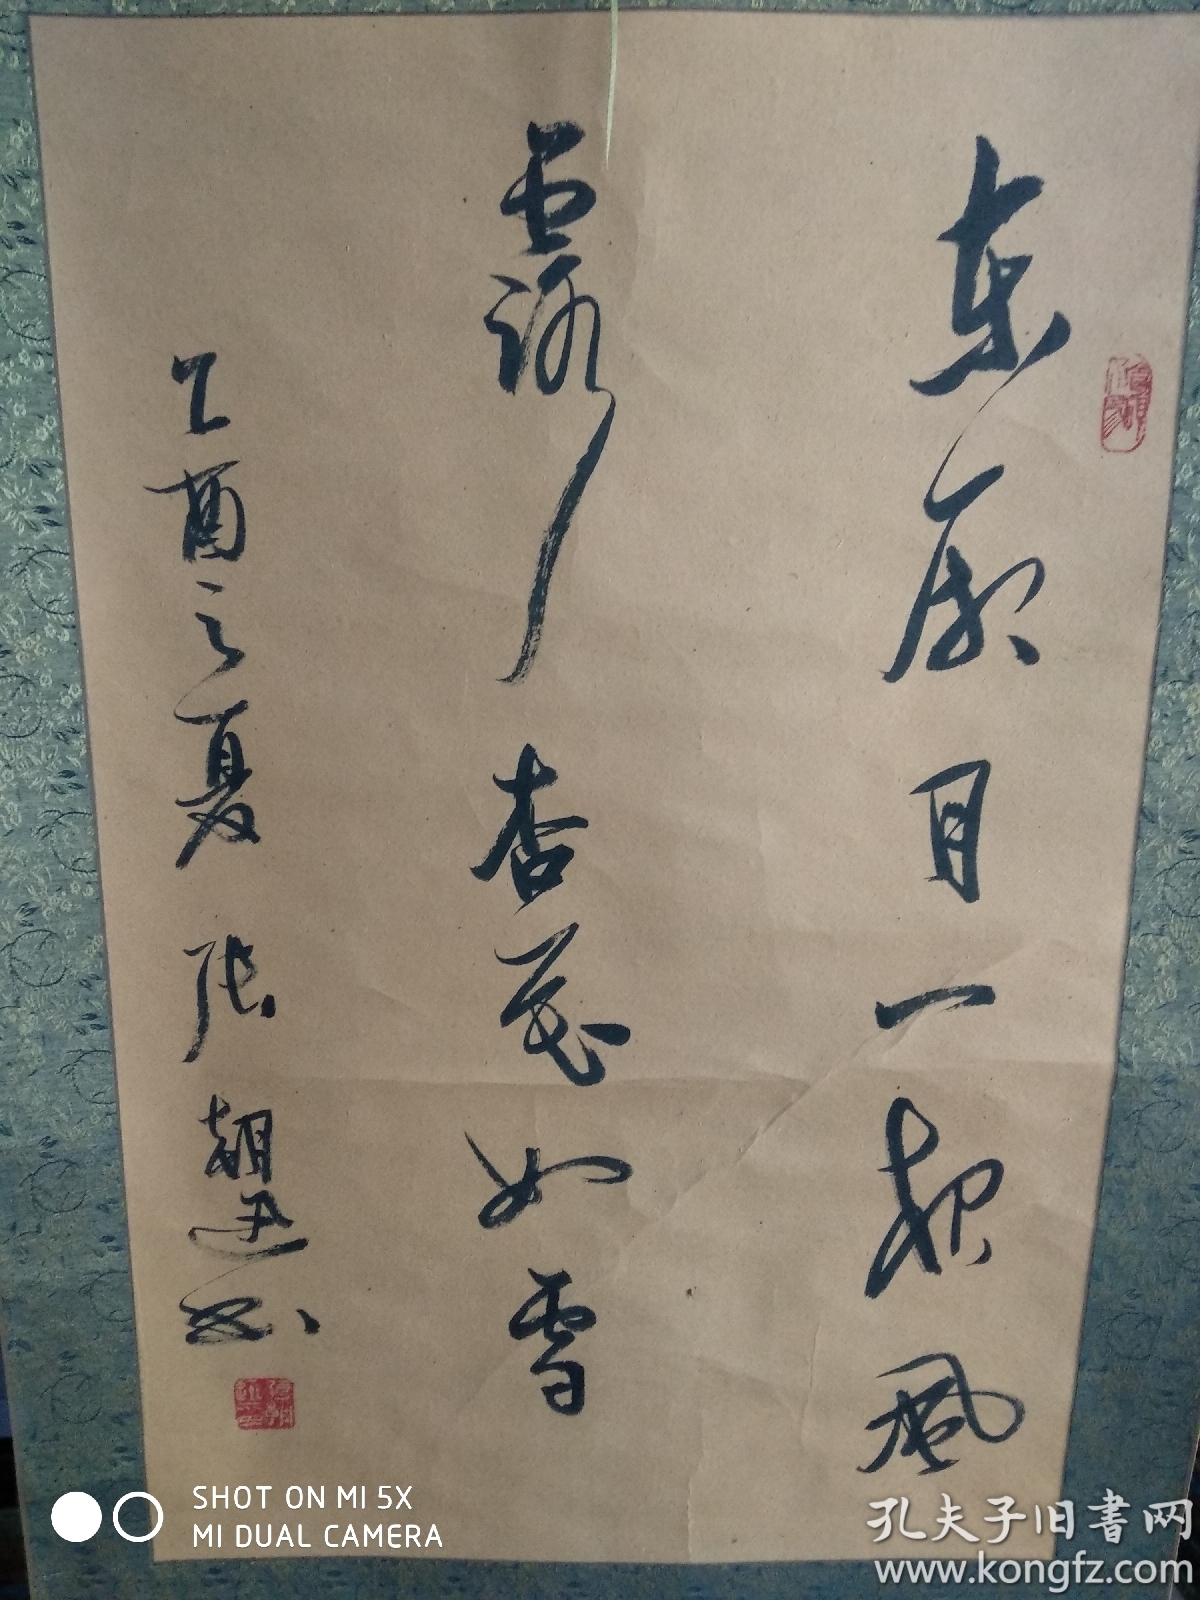 東廂月一夜風
露杏花如雪
乙酉之夏 張朝書
SHOT ON MI 5X
MI DUAL CAMERA
孔夫子旧书网
www.kongfz.com